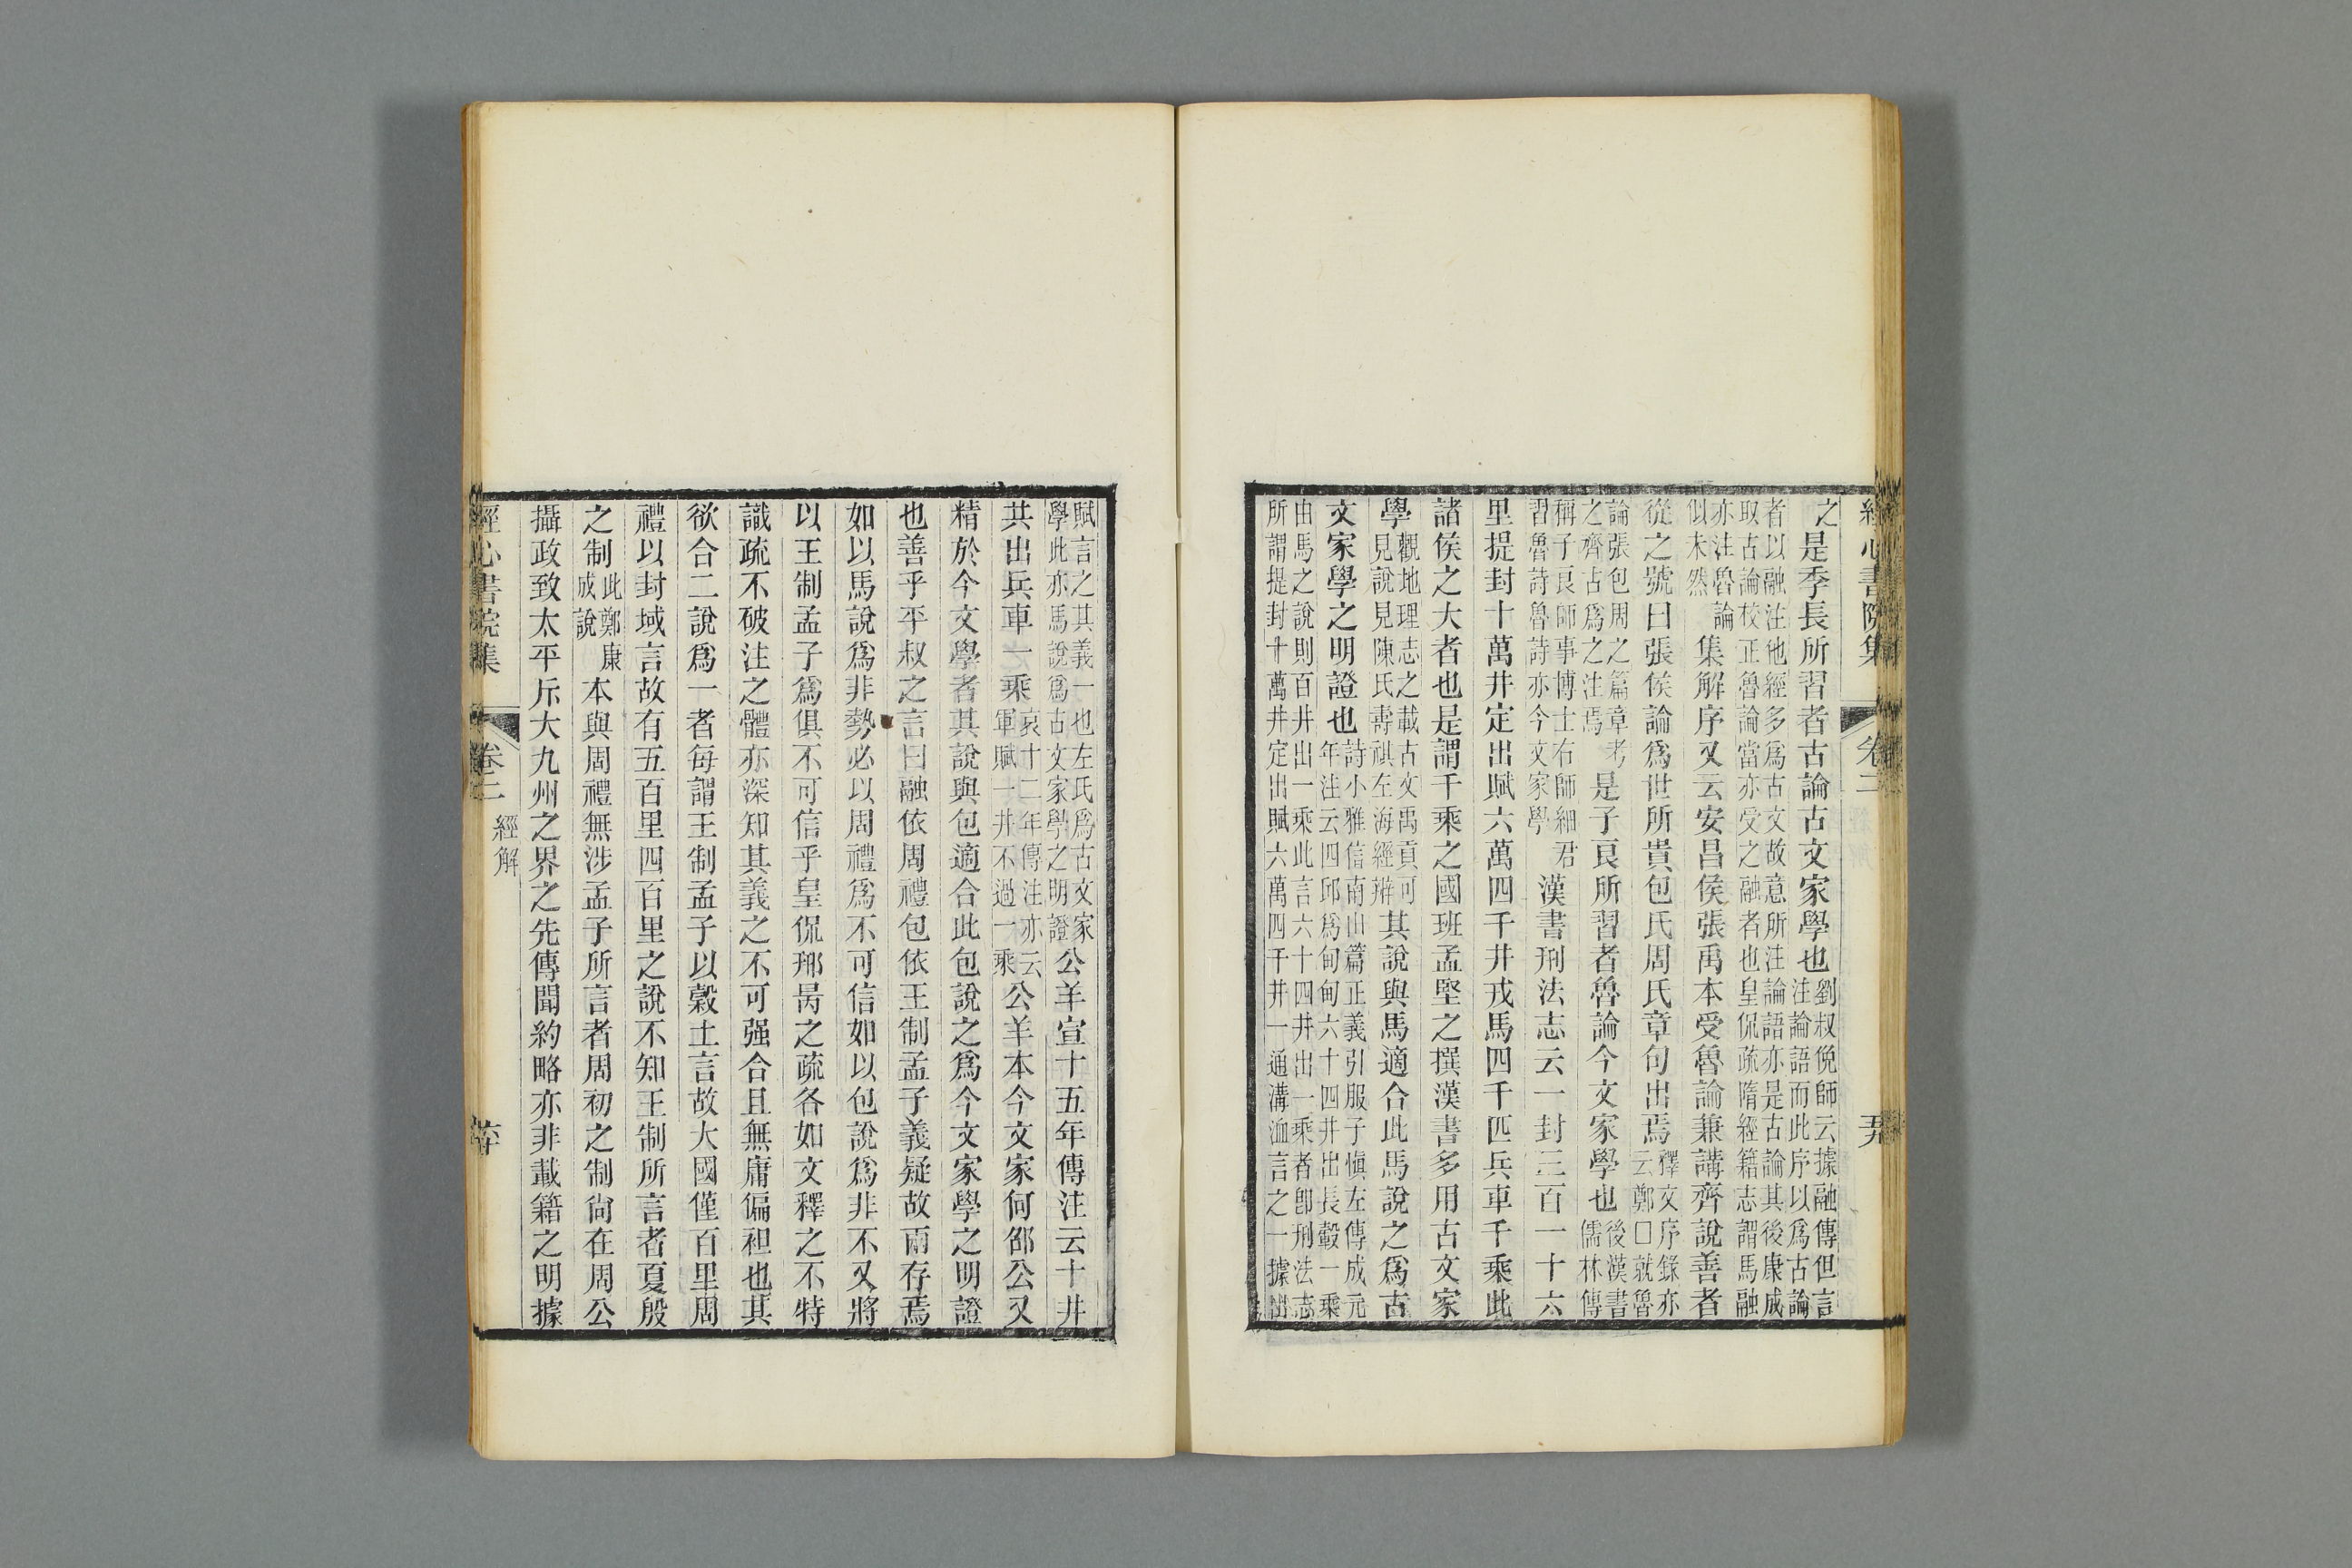 經心書院集 卷二
之是季長所習者古論古文家學也劉叔俛師云據融傳但言注論語而此序以爲古論
者以融注他經多爲古文故意所注論語亦是古論其後康成取古論校正魯論當亦受之融者也皇侃疏隋經籍志謂馬融
亦注魯論似未然集解序又云安昌侯張禹本受魯論兼講齊說善者
從之號曰張侯論爲世所貴包氏周氏章句出焉釋文序錄亦云鄭□就魯
論張包周之篇章考之齊古爲之注焉是子良所習者魯論今文家學也後漢書儒林傳
稱子良師事博士右師細君習魯詩魯詩亦今文家學漢書刑法志云一封三百一十六
里提封十萬井定出賦六萬四千井戎馬四千匹兵車千乘此
諸侯之大者也是謂千乘之國班孟堅之撰漢書多用古文家
學觀地理志之載古文禹貢可見說見陳氏壽祺左海經辨其說與馬適合此馬說之爲古
文家學之明證也詩小雅信南山篇正義引服子愼左傳成元年注云四邱爲甸甸六十四井出長轂一乘
由馬之說則百井出一乘此言六十四井出一乘者卽刑法志所謂提封十萬井定出賦六萬四千井一通溝洫言之一據出
賦言之其義一也左氏爲古文家學此亦馬說爲古文家學之明證公羊宣十五年傳注云十井
共出兵車一乘哀十二年傳注亦云軍賦十井不過一乘公羊本今文家何邵公又
精於今文學者其說與包適合此包說之爲今文家學之明證
也善乎平叔之言曰融依周禮包依王制孟子義疑故兩存焉
如以馬說爲非勢必以周禮爲不可信如以包說爲非不又將
以王制孟子爲俱不可信乎皇侃邢昺之疏各如文釋之不特
識疏不破注之體亦深知其義之不可强合且無庸偏袒也其
欲合二說爲一者每謂王制孟子以穀土言故大國僅百里周
禮以封域言故有五百里四百里之說不知王制所言者夏殷
之制此鄭康成說本與周禮無涉孟子所言者周初之制尙在周公
攝政致太平斥大九州之界之先傳聞約略亦非載籍之明據
經心書院集 卷二 經解